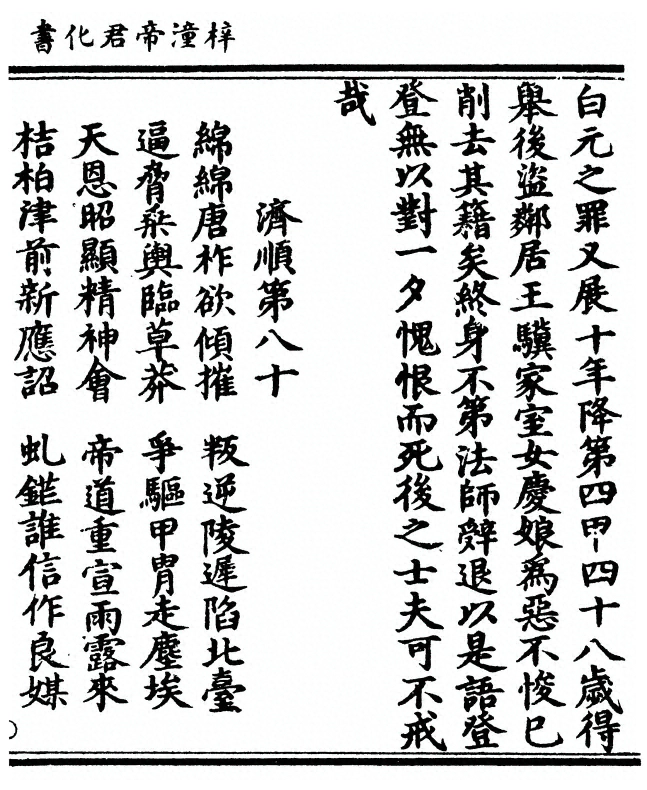 梓潼帝君化書
白元之罪又展十年降第四甲四十八歲得
舉後盜鄰居王驥家室女慶娘為惡不悛已
削去其籍矣終身不第法師辭退以是語登
登無以對一夕愧恨而死後之士夫可不戒
哉
濟順第八十
綿綿唐祚欲傾摧 叛逆陵遲陷北臺
逼脅乘輿臨草莽 爭驅甲冑走塵埃
天恩昭顯精神會 帝道重宣雨露來
桔柏津前新應詔 虬鎚誰信作良媒